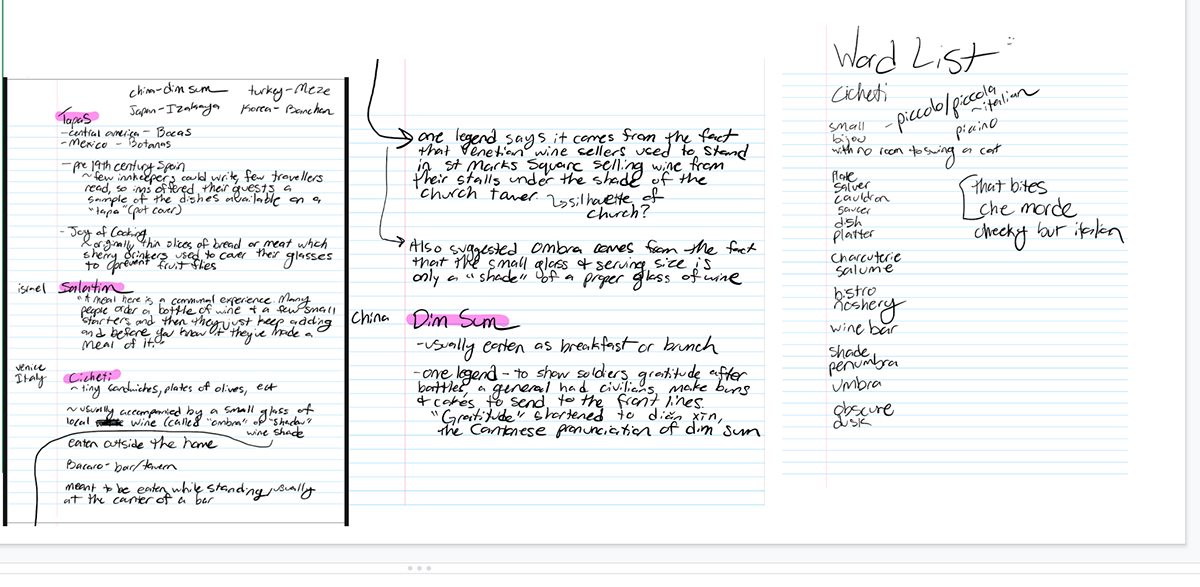 china-din sum turkey-Meze
Japan-Izakaya Korea-Banchan
Tapas
-central america - Bocas
-Mexico - Botanas
-pre 19th century Spain
~few innkeepers could write, few travellers
read, so inns offered their guests a
sample of the dishes available on a
"tapa" (pot cover)
- Joy of Cooking
originally thin slices of bread or meat which
sherry drinkers used to cover their glasses
to prevent fruit flies
israel Salatim
"A meal here is a communal experience. Many
people order a bottle of wine & a few small
starters and then they just keep adding
and before you know it they've made a
meal of it."
venice
Italy Cicheti
~ tiny sandwiches, plates of olives, ect
~usually accompanied by a small glass of
local wine (called "ombra" or "shadow"
wine shade
eaten outside the home
Bacaro- bar/tavern
meant to be eaten while standing, usually
at the corner of a bar
one legend says it comes from the fact
that Venetian wine sellers used to stand
in St Marks Square selling wine from
their stalls under the shade of the
church tower
silhuette of
church?
Also suggested ombra comes from the fact
that the small glass & serving size is
only a "shade" of a proper glass of wine
China Dim Sum
-usually eaten as breakfast or brunch
-one legend - to show soldiers gratitude after
battles, a general had civilians make buns
& cakes to send to the front lines.
"Gratitude" shortened to diǎn xīn,
the Cantonese pronunciation of dim sum
Word List
Cicheti
small - piccolo/piccola
~italian
bijou piccino
with no room to swing a cat
plate
salver
cauldron
saucer
dish
platter
that bites
che morde
cheeky but italian
charcuterie
salume
bistro
noshery
wine bar
shade
penumbra
umbra
obscure
dusk